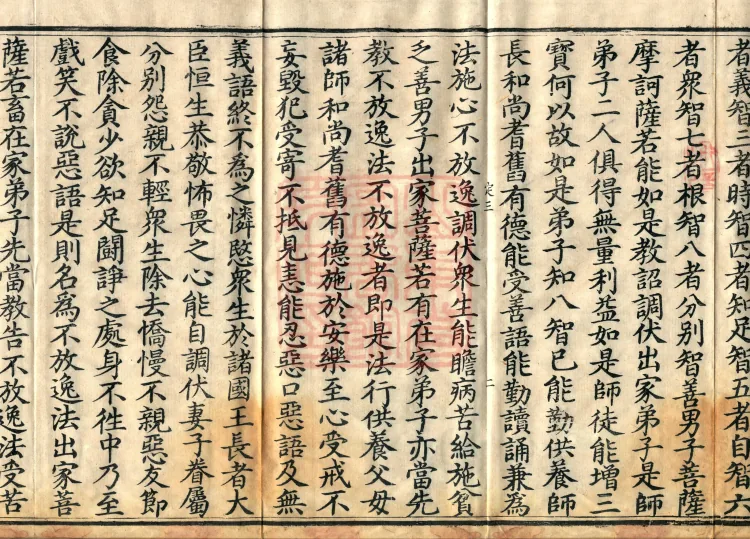 者義智三者時智四者知足智五者自智六
者衆智七者根智八者分别智善男子菩薩
摩訶薩若能如是教詔調伏出家弟子是師
弟子二人俱得無量利益如是師徒能增三
寶何以故如是弟子知八智已能勤供養師
長和尚耆舊有德能受善語能勤讀誦兼為
法施心不放逸調伏衆生能瞻病苦給施貧
乏善男子出家菩薩若有在家弟子亦當先
教不放逸法不放逸者即是法行供養父母
諸師和尚耆舊有德施於安樂至心受戒不
妄毀犯受寄不抵見恚能忍惡口惡語及無
義語終不為之憐愍衆生於諸國王長者大
臣恒生恭敬怖畏之心能自調伏妻子眷屬
分别怨親不輕衆生除去憍慢不親惡友節
食除貪少欲知足鬪諍之處身不徃中乃至
戲笑不說惡語是則名為不放逸法出家菩
薩若畜在家弟子先當教告不放逸法受苦